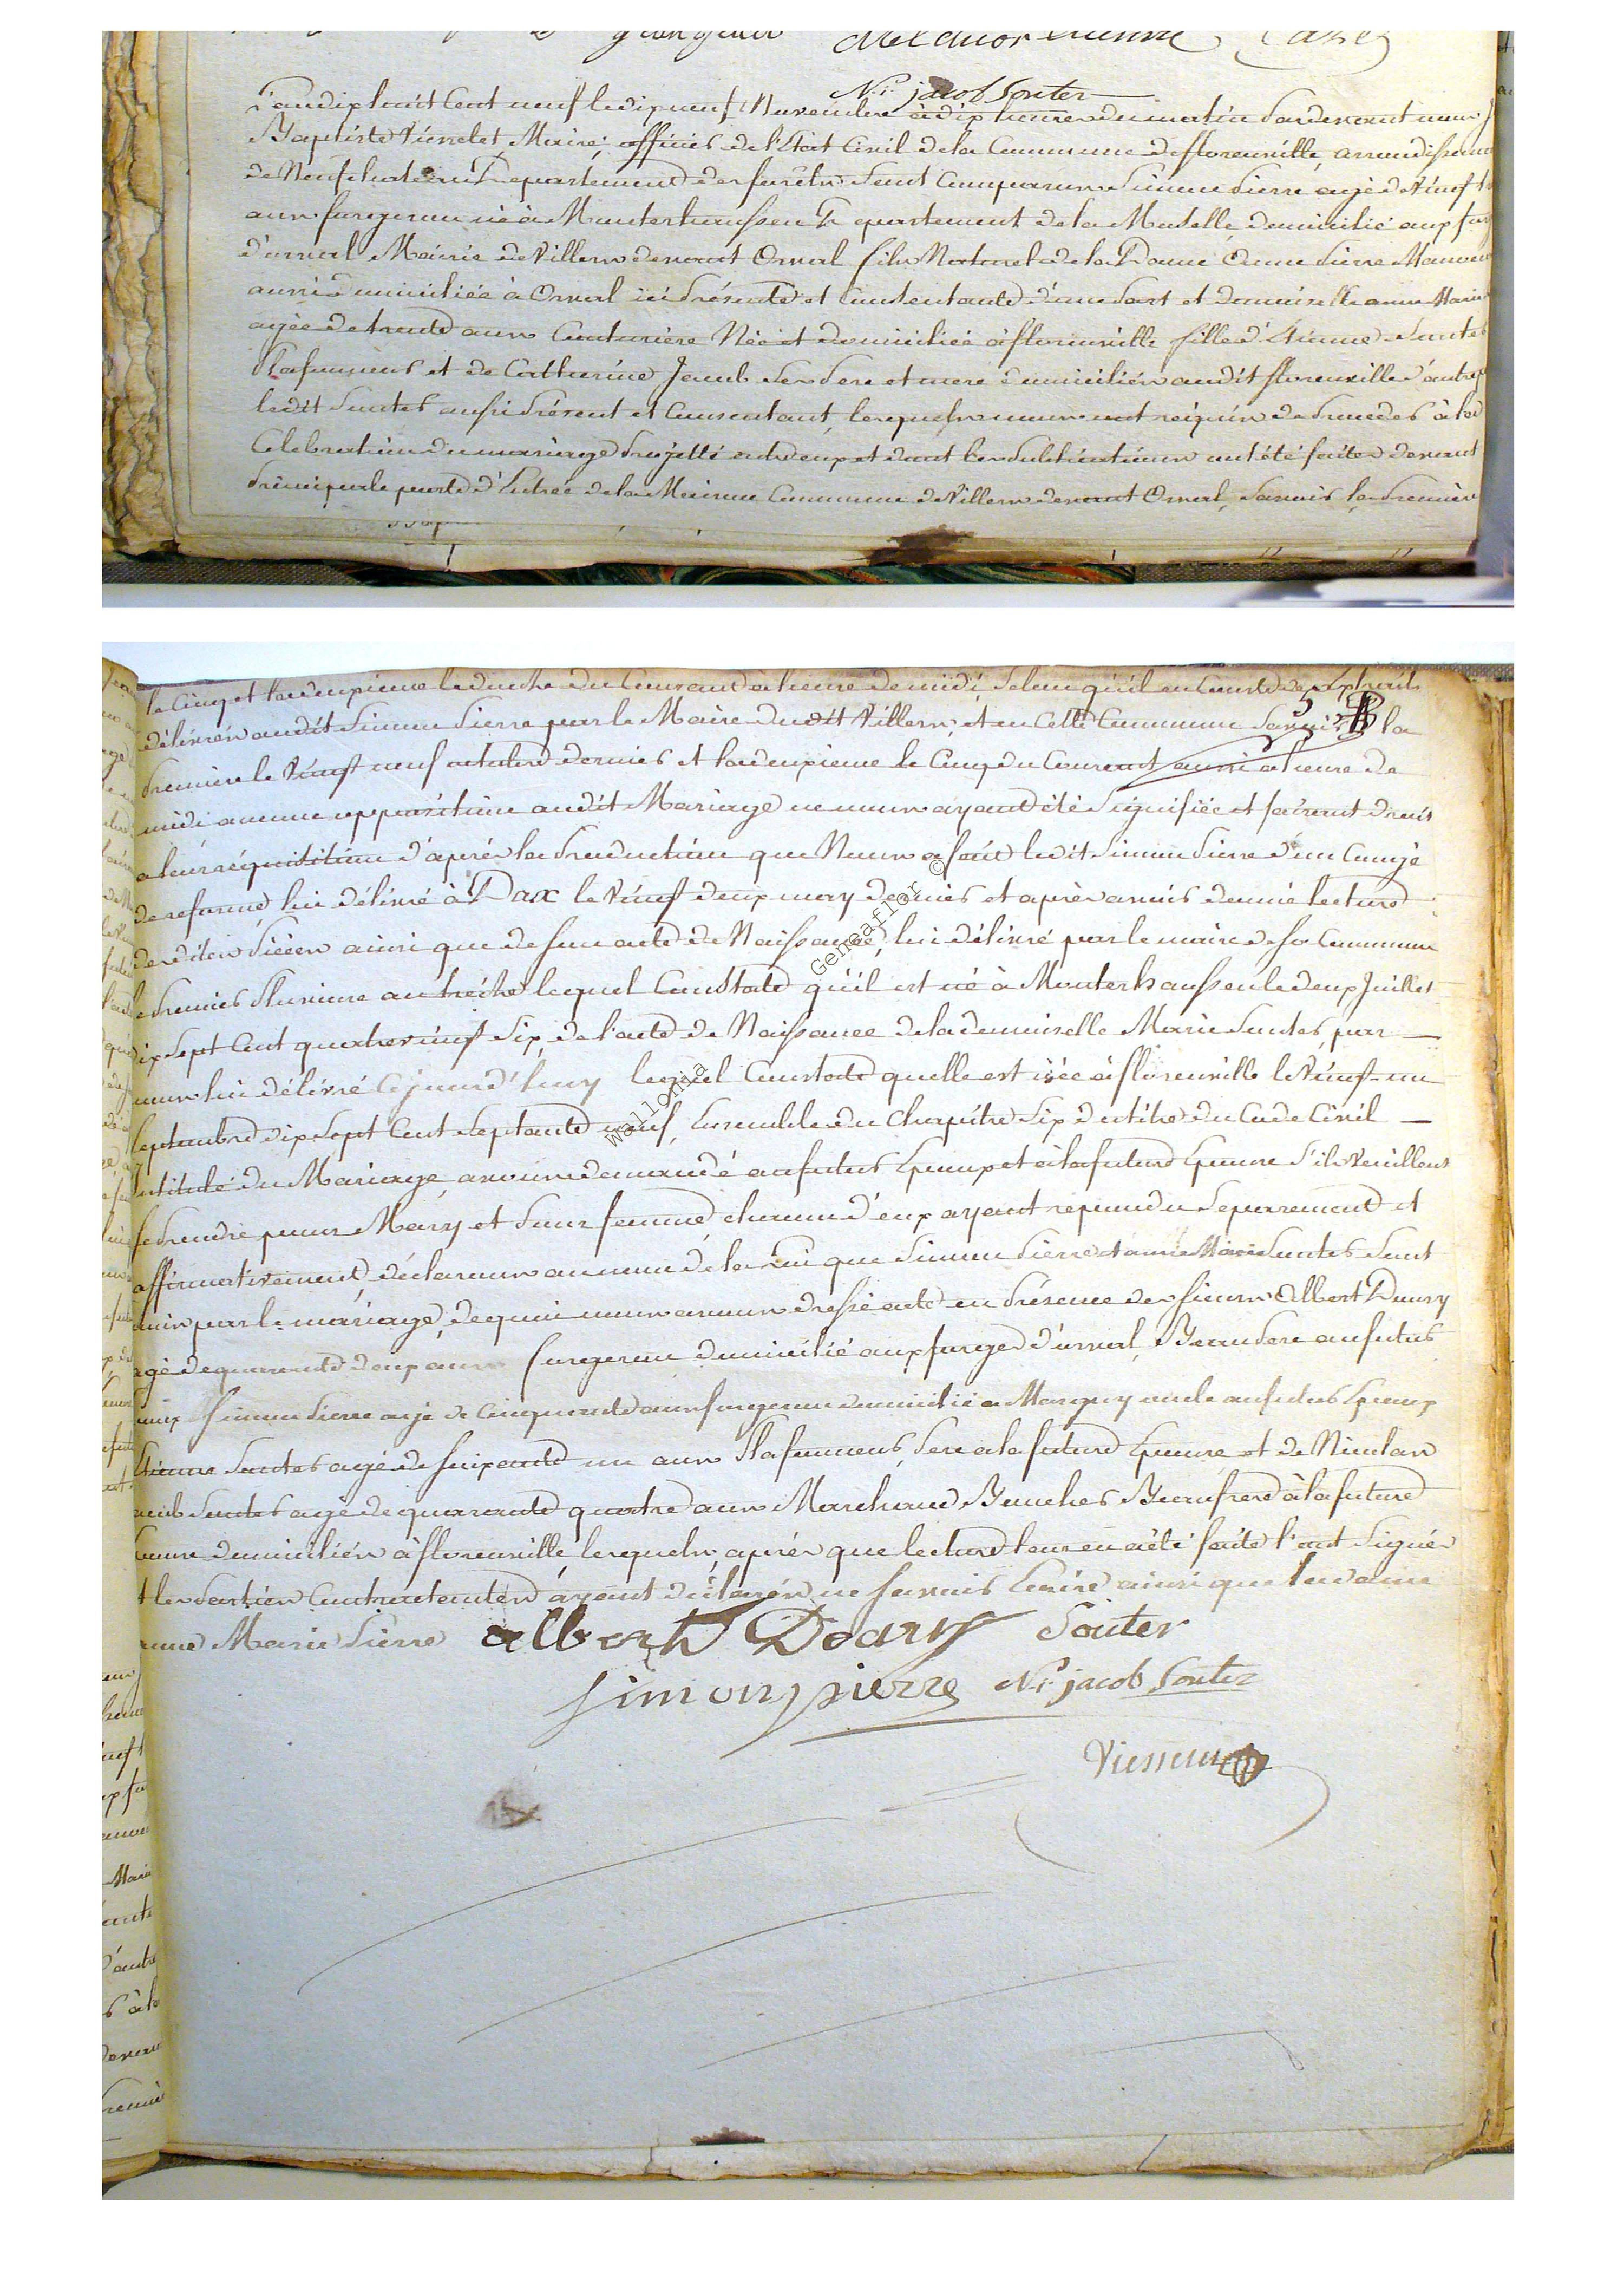 Ni. jacob Souter
L'an dix huit Cent neuf le dix neuf Novembre à dix heures du matin Pardevant nous J
Baptiste Viesselet Maire, officier de l'Etat Civil de la Commune de florenville, arrondissem
de Neufchateau Département des forêts Sont Comparus Simon Pierre agé de Vingt t
ans forgeron né à Monterhaussen Département de la Moselle, domicilié aux for
d'orval Mairie de Villers devant Orval fils Naturel de la Dame Anne Pierre Manoeu
aussi domiciliée à Orval ici présente et Consentante d'une Part et demoiselle anne Marie
agée de trente ans Couturière Née et domiciliée à florenville fille d'Etienne Souter
Plafonneur et de Catherine Jacob Ses Pere et mere domiciliés audit florenville d'autre p
ledit Souter aussi Présent et Consentant, lesquels nous ont requis de Proceder à la
Celebration du mariage Projetté entre eux et dont les Publications ont été faites devant
Principale porte d'Entrée de la Maison Commune de Villers devant Orval, Savoir la Premiere
le Cinq et la deuxieme le douze du Courant à heure de midi Selon qu'il en Conste des Extraits
5
délivrés audit Simon Pierre par le Maire dudit Villers, et en Cette Commune Savoir la
Premiere le Vingt neuf octobre dernier et la deuxieme le Cinq du Courant aussi à heure de
midi aucune opposition audit Mariage ne nous ayant été Signifiée et faisant droit
a leur réquisition d'après la Production que Nous a fait ledit Simon Pierre d'un Congé
de reforme lui délivré à Dax le Vingt deux may dernier et après avoir donné lecture
desdites Pièces ainsi que de Son acte de Naissance, lui délivré par le maire de Sa Commune
le Premier Pluviose an treize lequel Constate qu'il est né à Monterhaussen le deux Juillet
dix Sept Cent quatre vingt Six, de l'acte de Naissance de la demoiselle Marie Souter, par
nous lui délivré Cejourd'huy lequel Constate quelle est née à florenville le Vingt un
Septembre dix Sept Cent Septante neuf, Ensemble du Chapitre Six du titre du Code Civil
intitulé du Mariage, avons demandé au futur Epoux et à la future Epouse S'ils Veuillent
Se Prendre pour Mary et Pour femme, chacun d'eux ayant repondu Separement et
affirmativement, déclarons au nom de la Loi que Simon Pierre et anne Marie Souter Sont
unis par le mariage, de quoi nous avons dressé acte en Présence des Sieurs Albert Doury
agé de quarante deux ans forgeron domicilié aux forges d'orval, Beau Pere au futur
Epoux Simon Pierre agé de Cinquante ans forgeron domicilié a Margny oncle au futur Epoux
Etienne Souter agé de Soixante un ans Plafonneur, Pere à la future Epouse et de Nicolas
Jacob Souter agé de quarante quatre ans Marchand Boucher Beaufrere à la future
Epouse domiciliés à florenville, lesquels, après que lecture leur en a été faite l'ont Signés
et les Parties Contractantes ayant déclarés ne Savoir Ecrire ainsi que la dame
anne Marie Pierre albert Doary Souter
Simon pierre Ni. jacob Souter
Geneaflor ©
wallonia